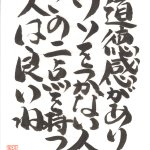 道徳感があり
ウソをつかない人
この二点を持つ
人は良いね